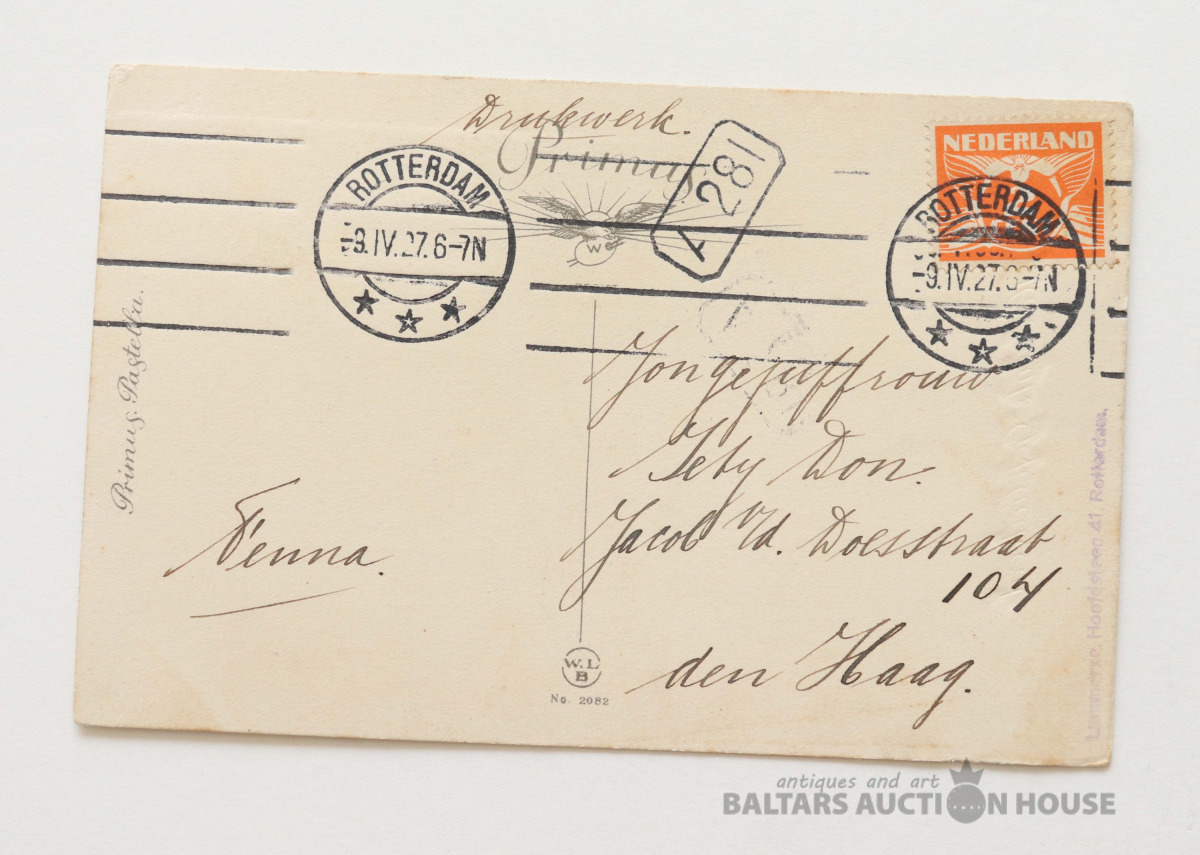 Drukwerk.
Primus
W
A 281
NEDERLAND
ROTTERDAM
-9.IV.27.6-7N
ROTTERDAM
-9.IV.27.6-7N
Primus Pastellbu.
Jongejuffrouw
Jety Don.
Jacob v/d. Doesstraat
104
den Haag.
Fenna.
W.L
B
No. 2082
Hoofdsteeg 41, Rotterdam.
antiques and art
BALTARS AUCTION HOUSE